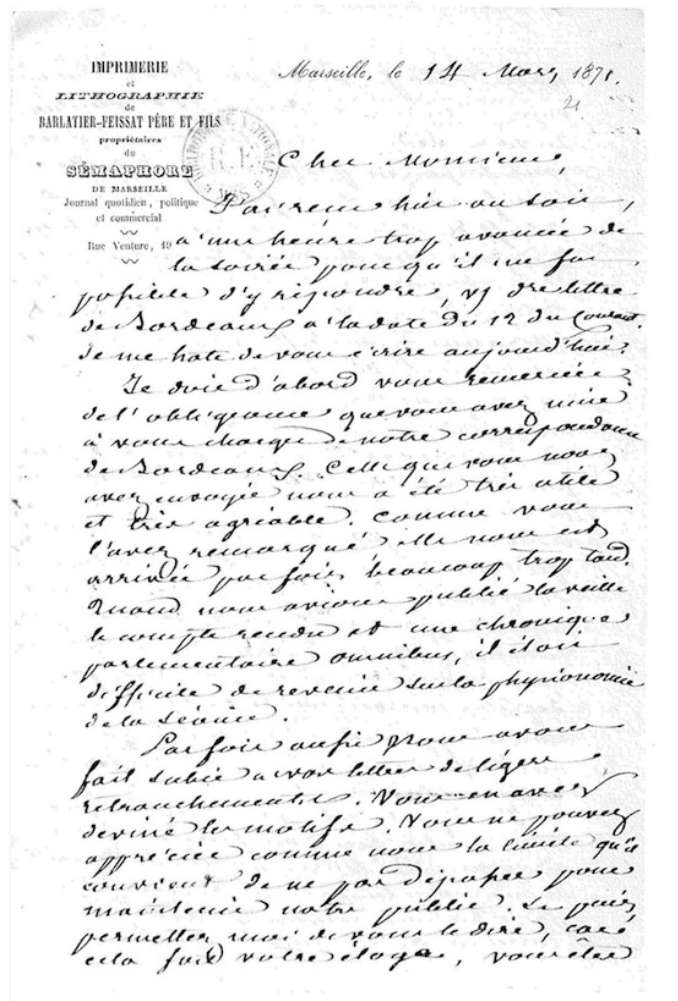 IMPRIMERIE
et
LITHOGRAPHIE
de
BARLATIER-FEISSAT PÈRE ET FILS
propriétaires
du
SÉMAPHORE
DE MARSEILLE
Journal quotidien, politique
et commercial
Rue Venture, 19
Marseille, le 14 Mars 1871.
21
Cher Monsieur,
J'ai reçu hier au soir,
à une heure trop avancée de
la soirée pour qu'il me fut
possible d'y répondre, lettre
de Bordeaux à la date du 12 du Courant.
Je me hate de vous écrire aujourd'hui.
Je dois d'abord vous remercier
de l'obligeance que vous avez mise
à vous charger de notre correspondance
de Bordeaux. Celle que vous nous
avez envoyée nous a été très utile
et très agréable. Comme vous
l'avez remarqué elle nous est
arrivée parfois beaucoup trop tard.
Quand nous avions publié la veille
le compte rendu et une chronique
parlementaire omnibus, il était
difficile de revenir sur la physionomie
de la séance.
Parfois aussi nous avons
fait subir à vos lettres de légers
retranchements. Vous en avez
deviné les motifs. Vous ne pouvez
apprécier comme nous la limite qu'il
convient de ne pas dépasser pour
maintenir notre public. Et puis,
permettez moi de vous le dire, car
cela fait votre éloge, vous êtes